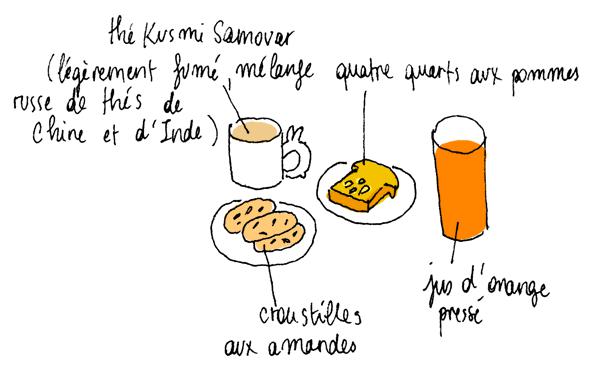 thé Kusmi Samovar
(légèrement fumé, mélange
russe de thés de
Chine et d'Inde)
quatre quarts aux pommes
jus d'orange
pressé
croustilles
aux amandes